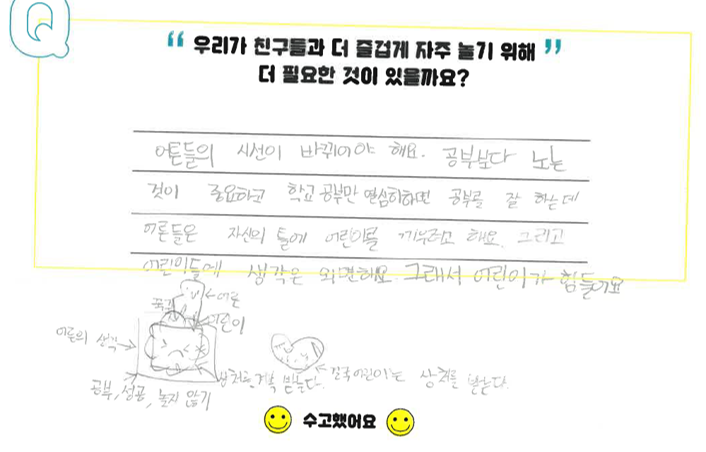 Q
“ 우리가 친구들과 더 즐겁게 자주 놀기 위해 ”
더 필요한 것이 있을까요?
어른들의 시선이 바뀌어야 해요. 공부보다 노는
것이 중요하고 학교 공부만 열심히하면 공부를 잘 하는데
어른들은 자신의 틀에 어린이를 끼우려고 해요. 그리고
어린이들에 생각은 외면해요. 그래서 어린이가 힘들어요
←어른
←어린이
어른의 생각→
상처를 계속 받는다.
←결국 어린이는 상처를 받는다.
공부, 성공, 놀지 않기
수고했어요